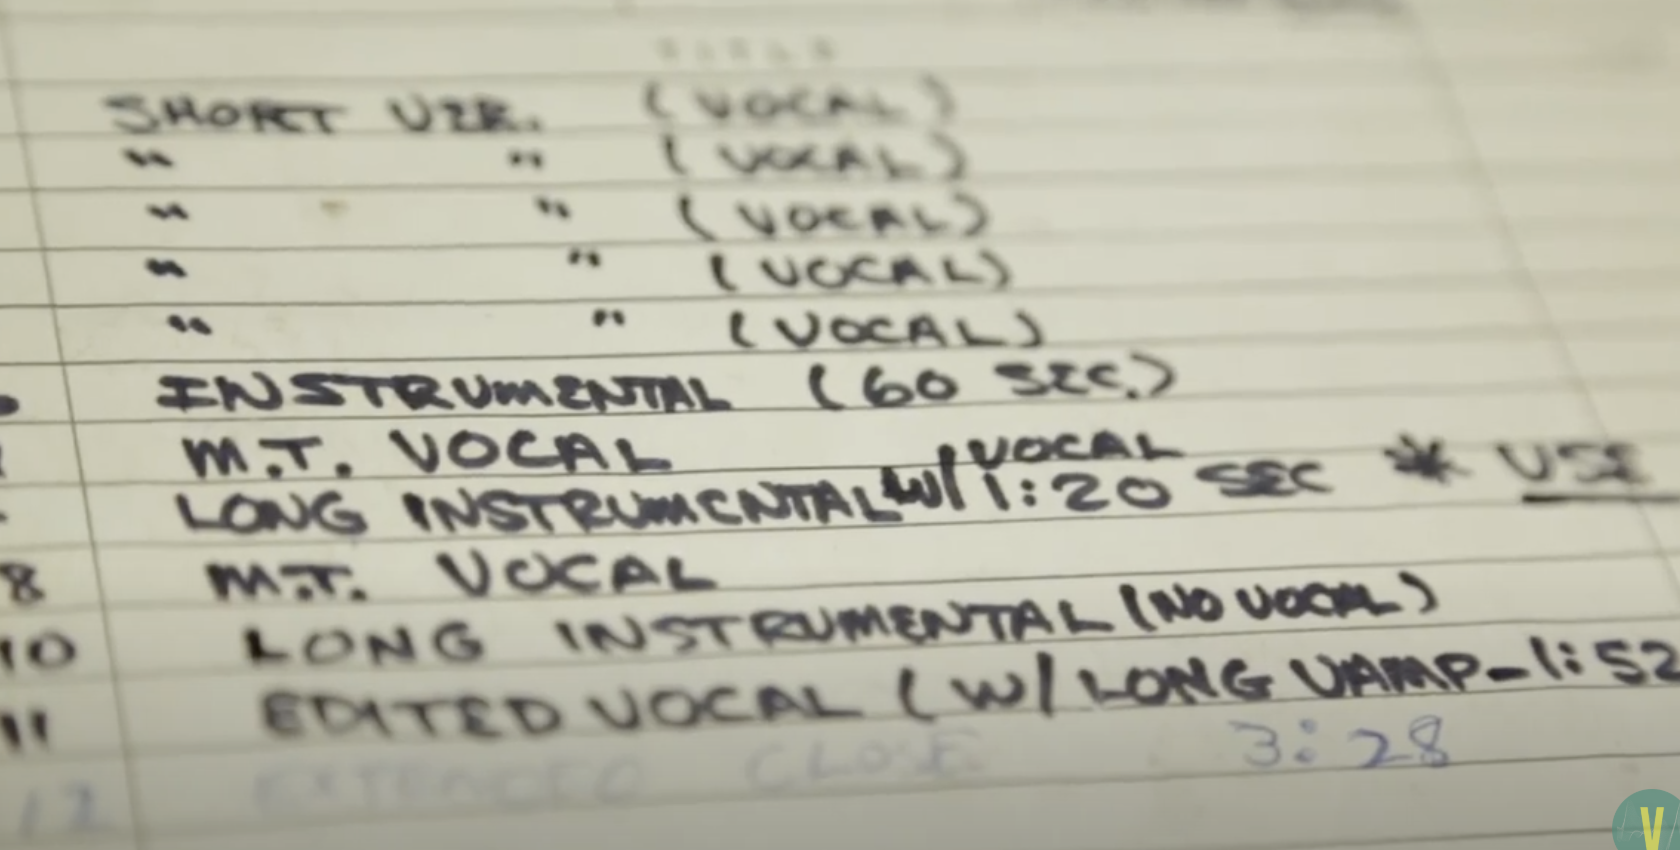 TITLE
SHORT VER. (VOCAL)
" " (VOCAL)
" " (VOCAL)
" " (VOCAL)
" " (VOCAL)
INSTRUMENTAL (60 SEC.)
M.T. VOCAL
LONG INSTRUMENTAL W/ VOCAL 1:20 SEC * USE
8 M.T. VOCAL
10 LONG INSTRUMENTAL (NO VOCAL)
11 EDITED VOCAL (W/ LONG VAMP - 1:52
12 EXTENDED CLOSE 3:28
V